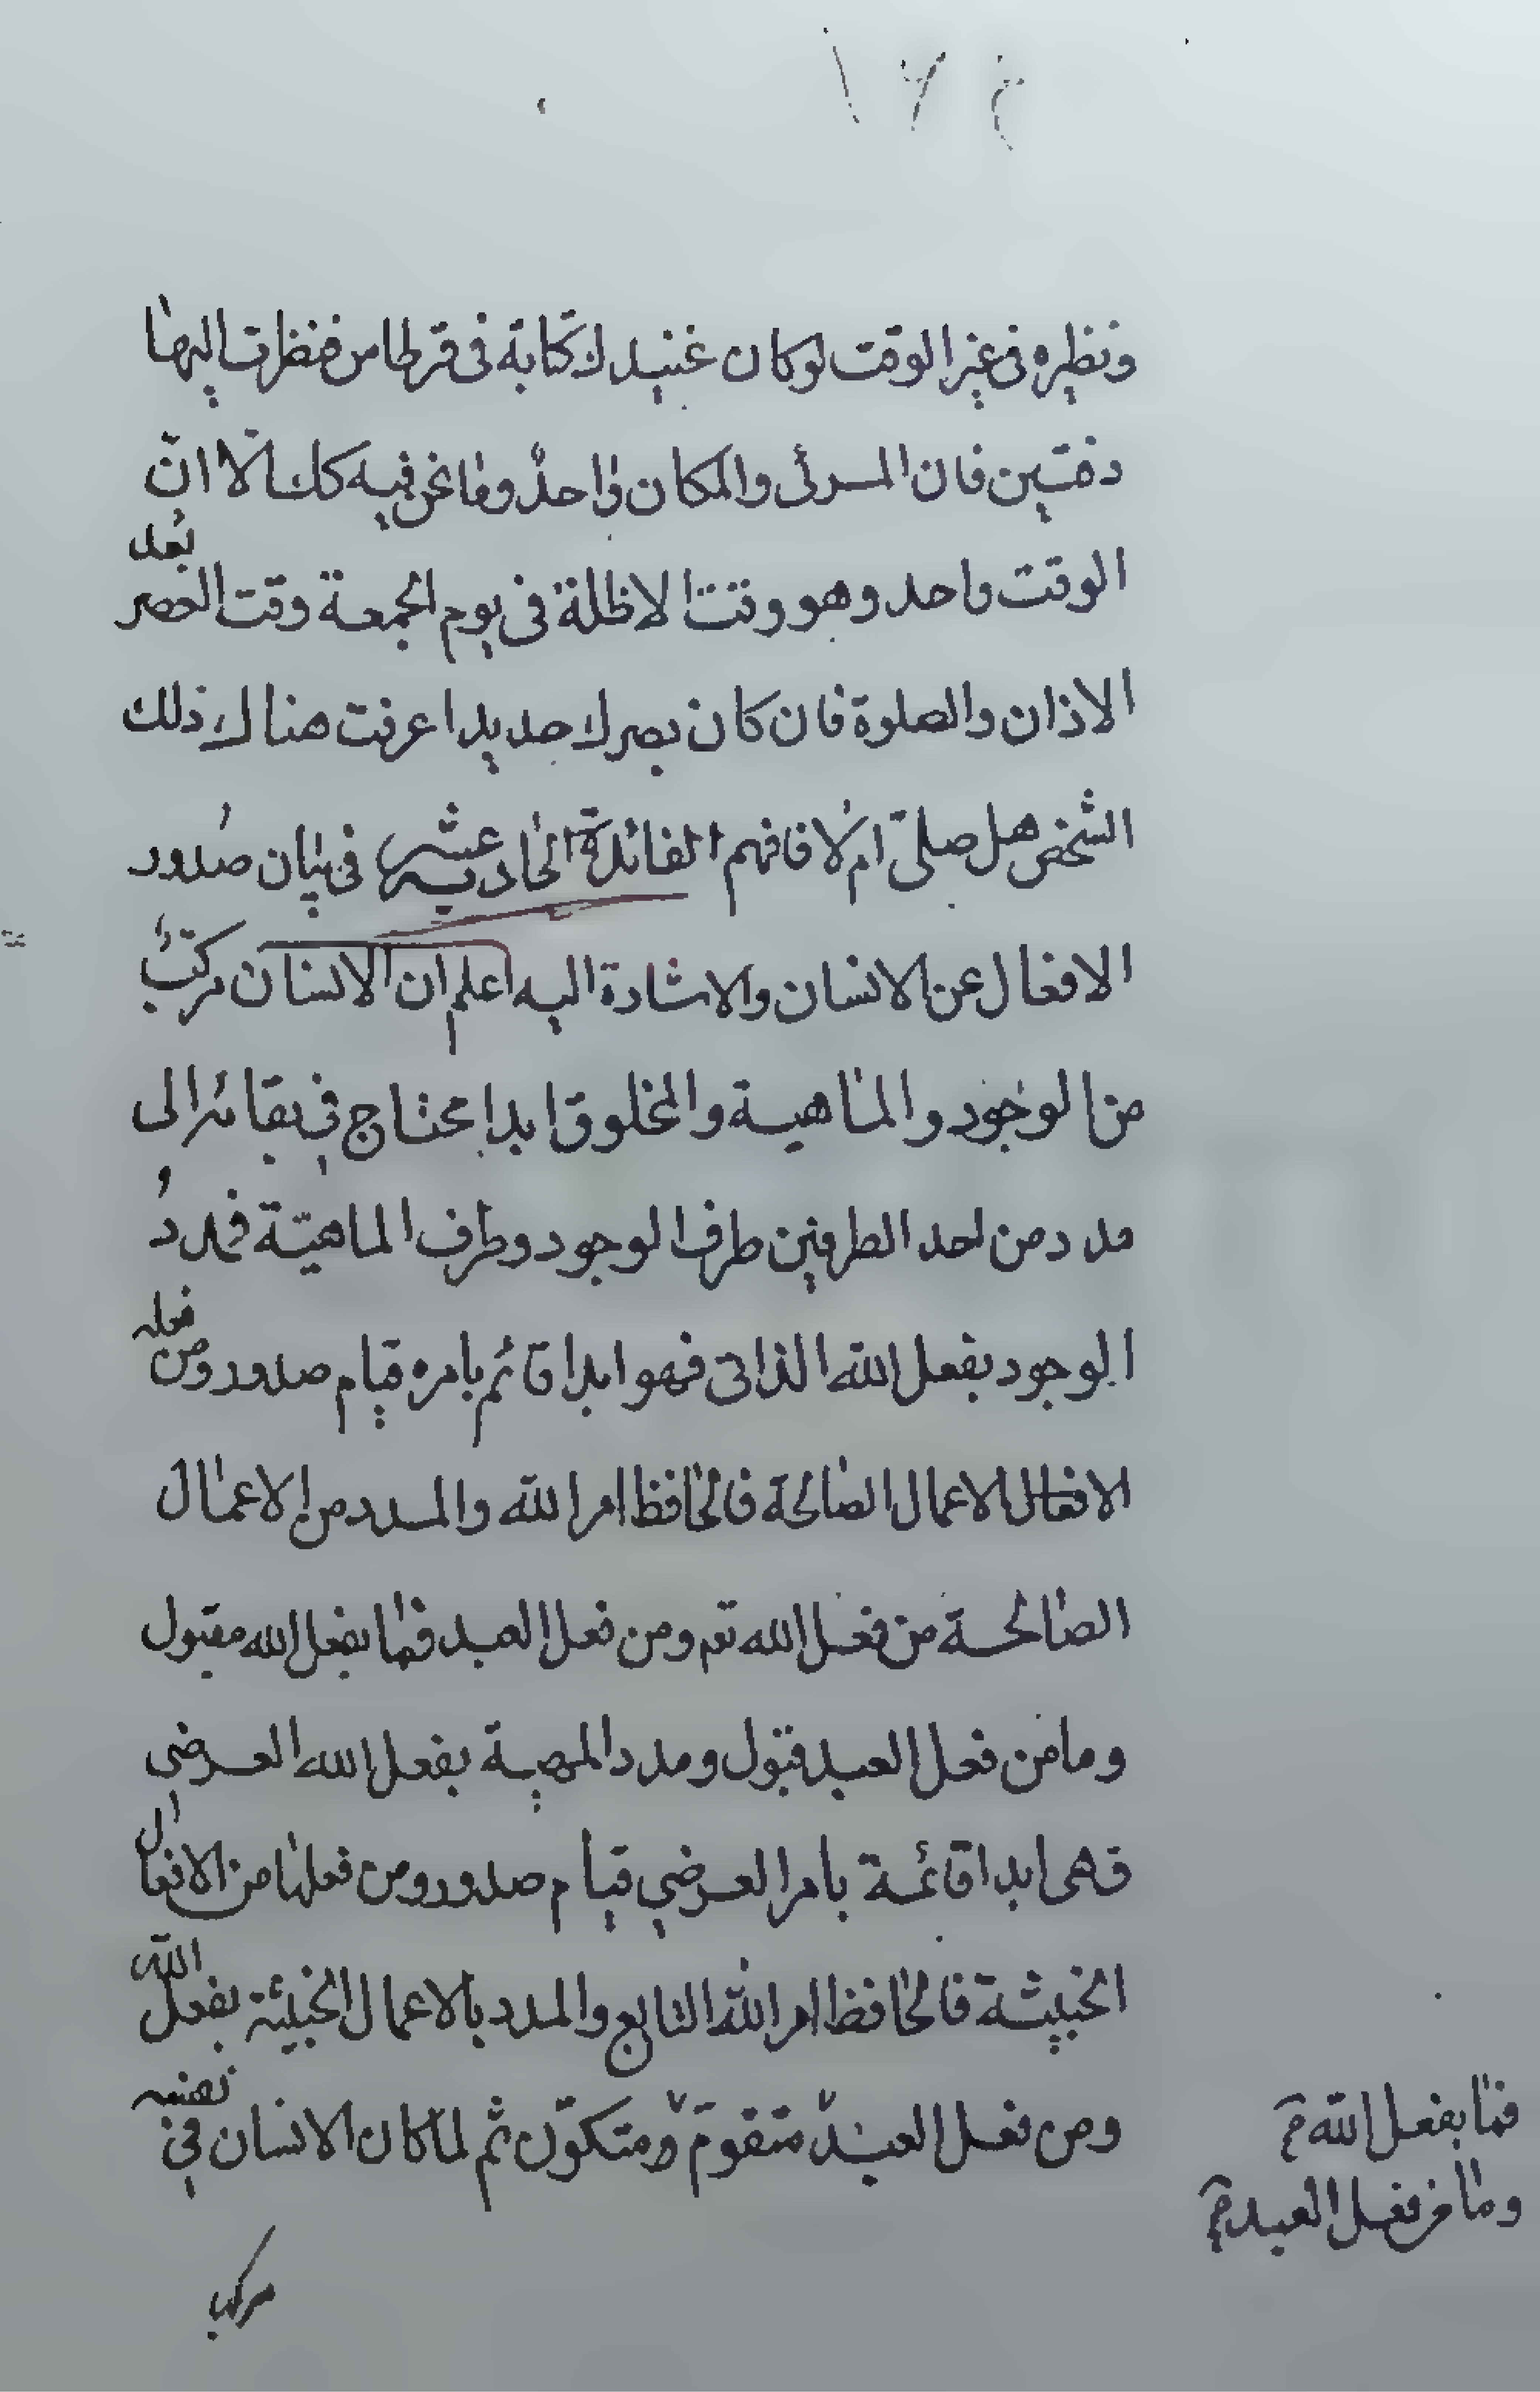 ونظيره فى غير الوقت لو كان عنيدك كتابة فى قرطاس فنظرت اليها
دفعتين فان المرئى والمكان واحدٌ وما نحن فيه كك الّا انّ
الوقت واحد وهو وقت الاظلة فى يوم الجمعة وقت العصر بُعد
الاذان والصلوة فان كان بصرك حديدا عرفت هناك ذلك
الشخص هل صلىّ ام لا فافهم الفائدة الحادية عشر فى بيان صدور
الافعال عن الانسان والاشارة اليه اعلم ان الانسان مركبٌ
من الوجود والماهية والمخلوق ابدا محتاج فى بقائه الى
مدد من احد الطرفين طرف الوجود وطرف الماهيّة فمددُ
الوجود بفعل اللّه الذاتى فهو ابدا قائم بامره قيام صدور ومن فعله
الافعال الاعمال الصالحة فالحافظ امر اللّه والمدد من الاعمال
الصالحة من فعل الله تعم ومن فعل العبد فما بفعل الله مقبول
وما من فعل العبد قبول ومدد المهية بفعل الله العرضي
فهى ابدا قائمة بامر العرضي قيام صدور ومن فعلها من الافعال
الخبيثة فالحافظ امر اللّه التابع والمدد بالاعمال الخبيثة بفعل اللّه
ومن فعل العبد متقوم ومتكوّن ثم لما كان الانسان في نفسه
فما بفعل اللّه
وما من فعل العبد
مركب